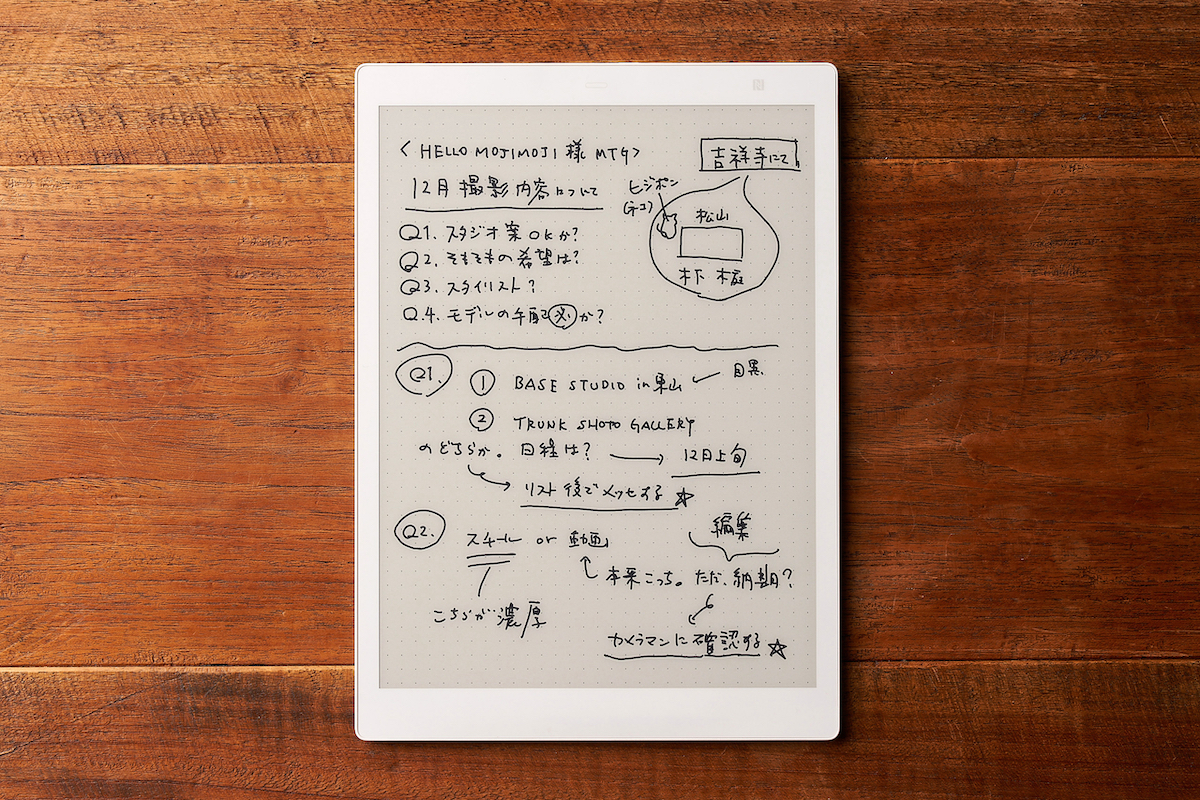 < HELLO MOJIMOJI 様 MTG>
12月 撮影内容について
吉祥寺にて
ヒジポン
(ネコ)
松山
木下
Q1. スタジオ案 OKか?
Q2. そもそもの希望は?
Q3. スタイリスト?
Q.4. モデルの手配 必 か?
Q1.
① BASE STUDIO in 東山
② TRUNK SHOTO GALLERY
のどちらか。日程は? → 12月上旬
リスト後でメッセする ☆
Q2.
スチール or 動画
編集
本来こっち。ただ、納期?
こちらが濃厚
カメラマンに確認する ☆